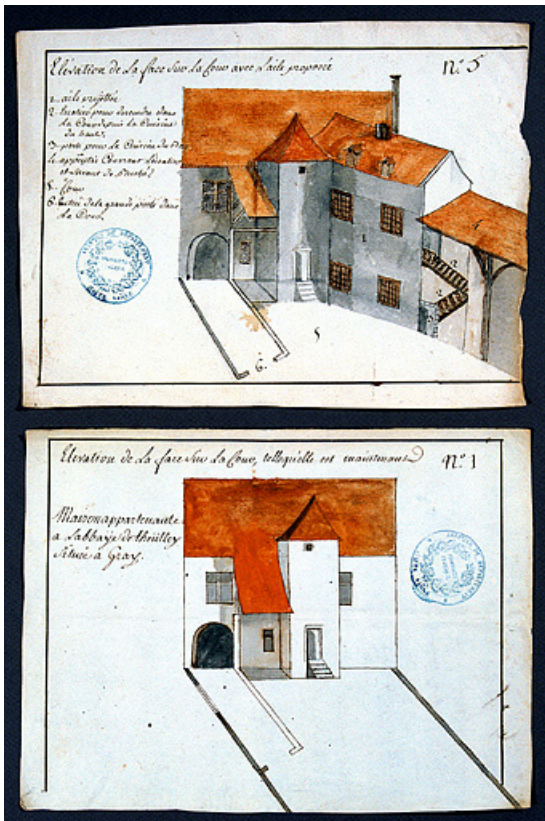 Elévation de la face sur la Cour avec l'aile proposée
N.º 5
1. aile projettée
2. Escalier pour descendre dans
la Cour depuis la Cuisine
du haut,
3. porte pour la Cuisine du bas
5. Cour
6. de la grande porte dans
la Cour.
1
2
2
4
5
6.
Elevation de la face sur la Cour, telle qu'elle est maintenant
N.º 1
Maison appartenante
a l'abbaye de theulley
Située a Gray.